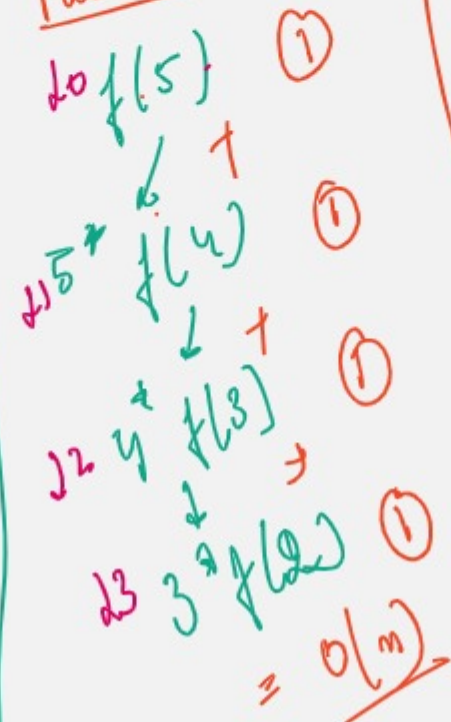 L0 f(5) 1
+
L1 5* f(4) 1
+
L2 4* f(3) 1
+
L3 3* f(2) 1
= O(n)